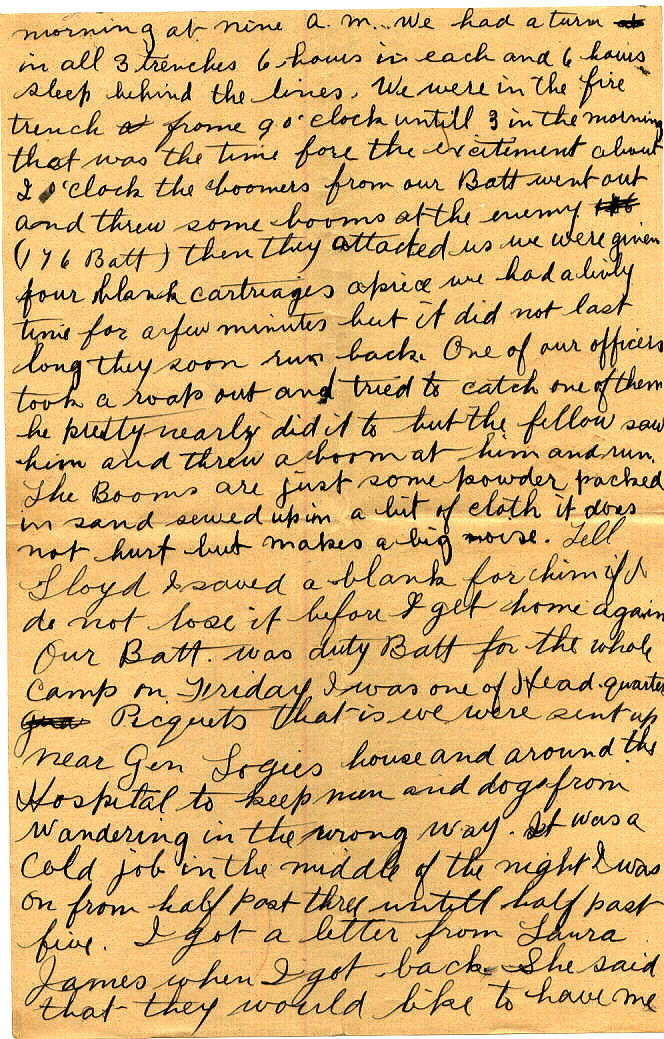 morning at nine A.M. We had a turn
in all 3 trenches 6 hours in each and 6 hours
sleep behind the lines. We were in the fire
trench frome 9 o'clock untill 3 in the morning
that was the time fore the excitement about
2 o'clock the boomers from our Batt went out
and threw some booms at the enemy
(176 Batt) then they attacted us we were given
four blank cartriages apiece we had a livly
time for a few minutes but it did not last
long they soon run back. One of our officers
took a roap out and tried to catch one of them
he pretty nearly did it to but the fellow saw
him and threw a boom at him and run.
The Booms are just some powder packed
in sand sewed up in a bit of cloth it does
not hurt but makes a big noise. Tell
Lloyd I saved a blank for him if I
do not lose it before I get home again
Our Batt. was duty Batt for the whole
Camp on Friday I was one of Head quarter
Picquets that is we were sent up
near Gen Logies house and around the
Hospital to keep men and dogs from
wandering in the wrong way. It was a
cold job in the middle of the night I was
on from half past three untill half past
five. I got a letter from Laura
James when I got back. She said
that they would like to have me